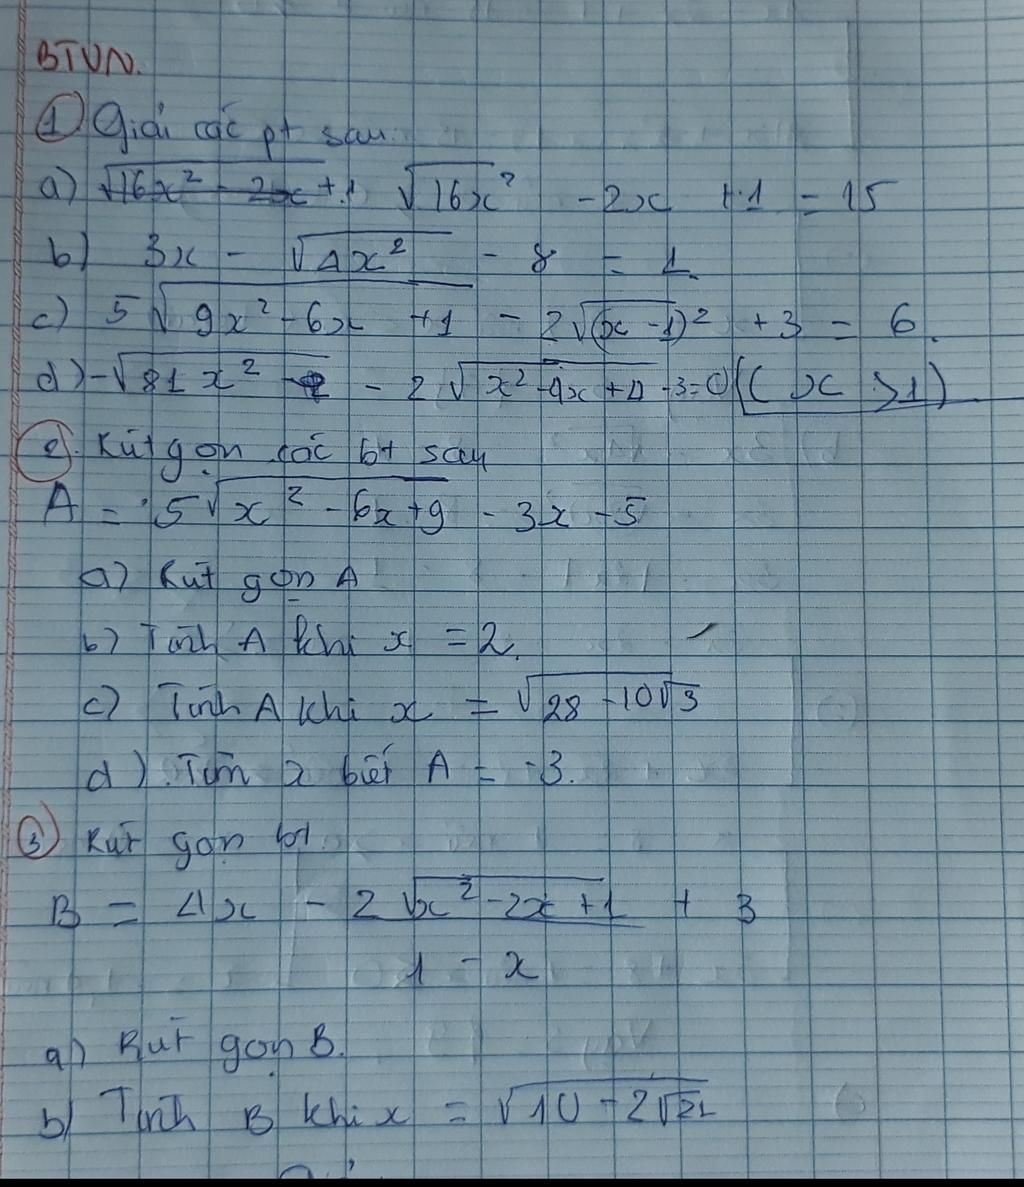 BTVN.
① Giải các pt sau:
a) √16x² - 2x + 1 √16x² - 2x + 1 = 15
b) 3x - √4x² - 8 = 1
c) 5√9x² - 6x + 1 - 2√(x - 1)² + 3 = 6.
d) -√81x² - 2√x² - 4x + 4 - 3 = 0 (( x > 1)
②. Rút gọn các bt sau
A = 5√x² - 6x + 9 - 3x - 5
a) Rút gọn A
b) Tính A khi x = 2.
c) Tính A khi x = √28 - 10√3
d). Tìm x biết A = -3.
③ Rút gọn bt.
B = 4x - 2√x² - 2x + 1 + 3
1 - x
a) Rút gọn B.
b) Tính B khi x = √10 - 2√21